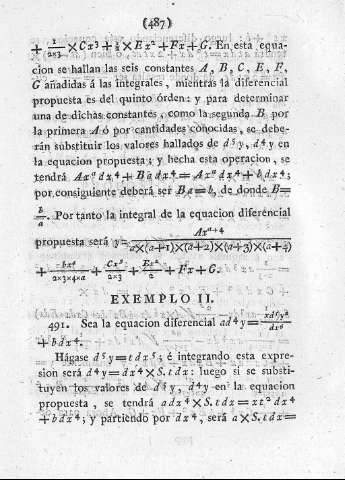 (487)
+ 1/2×3 × Cx³ + ½ × Ex² + Fx + G. En esta equa-
cion se hallan las seis constantes A, B, C, E, F,
G añadidas á las integrales, mientras la diferencial
propuesta es del quinto órden: y para determinar
una de dichas constantes, como la segunda B por
la primera A ó por cantidades conocidas, se debe-
rán substituir los valores hallados de d⁵y, d⁴y en
la equacion propuesta; y hecha esta operacion, se
tendrá Axᵃdx⁴ + Badx⁴ = Axᵃdx⁴ + bdx⁴;
por consiguiente deberá ser Ba = b, de donde B =
b/a. Por tanto la integral de la equacion diferencial
propuesta será y = Axᵃ⁺⁴/a×(a+1)×(a+2)×(a+3)×(a+4)
+ bx⁴/2×3×4×a + Cx³/2×3 + Ex²/2 + Fx + G.
EXEMPLO II.
491. Sea la equacion diferencial ad⁴y = xd⁵y²/dx⁶
+ bdx⁴.
Hágase d⁵y = tdx⁵; é integrando esta expre-
sion será d⁴y = dx⁴ × S.tdx: luego si se substi-
tuyen los valores de d⁵y, d⁴y en la equacion
propuesta, se tendrá adx⁴ × S.tdx = xt²dx⁴
+ bdx⁴; y partiendo por dx⁴, será a × S.tdx =